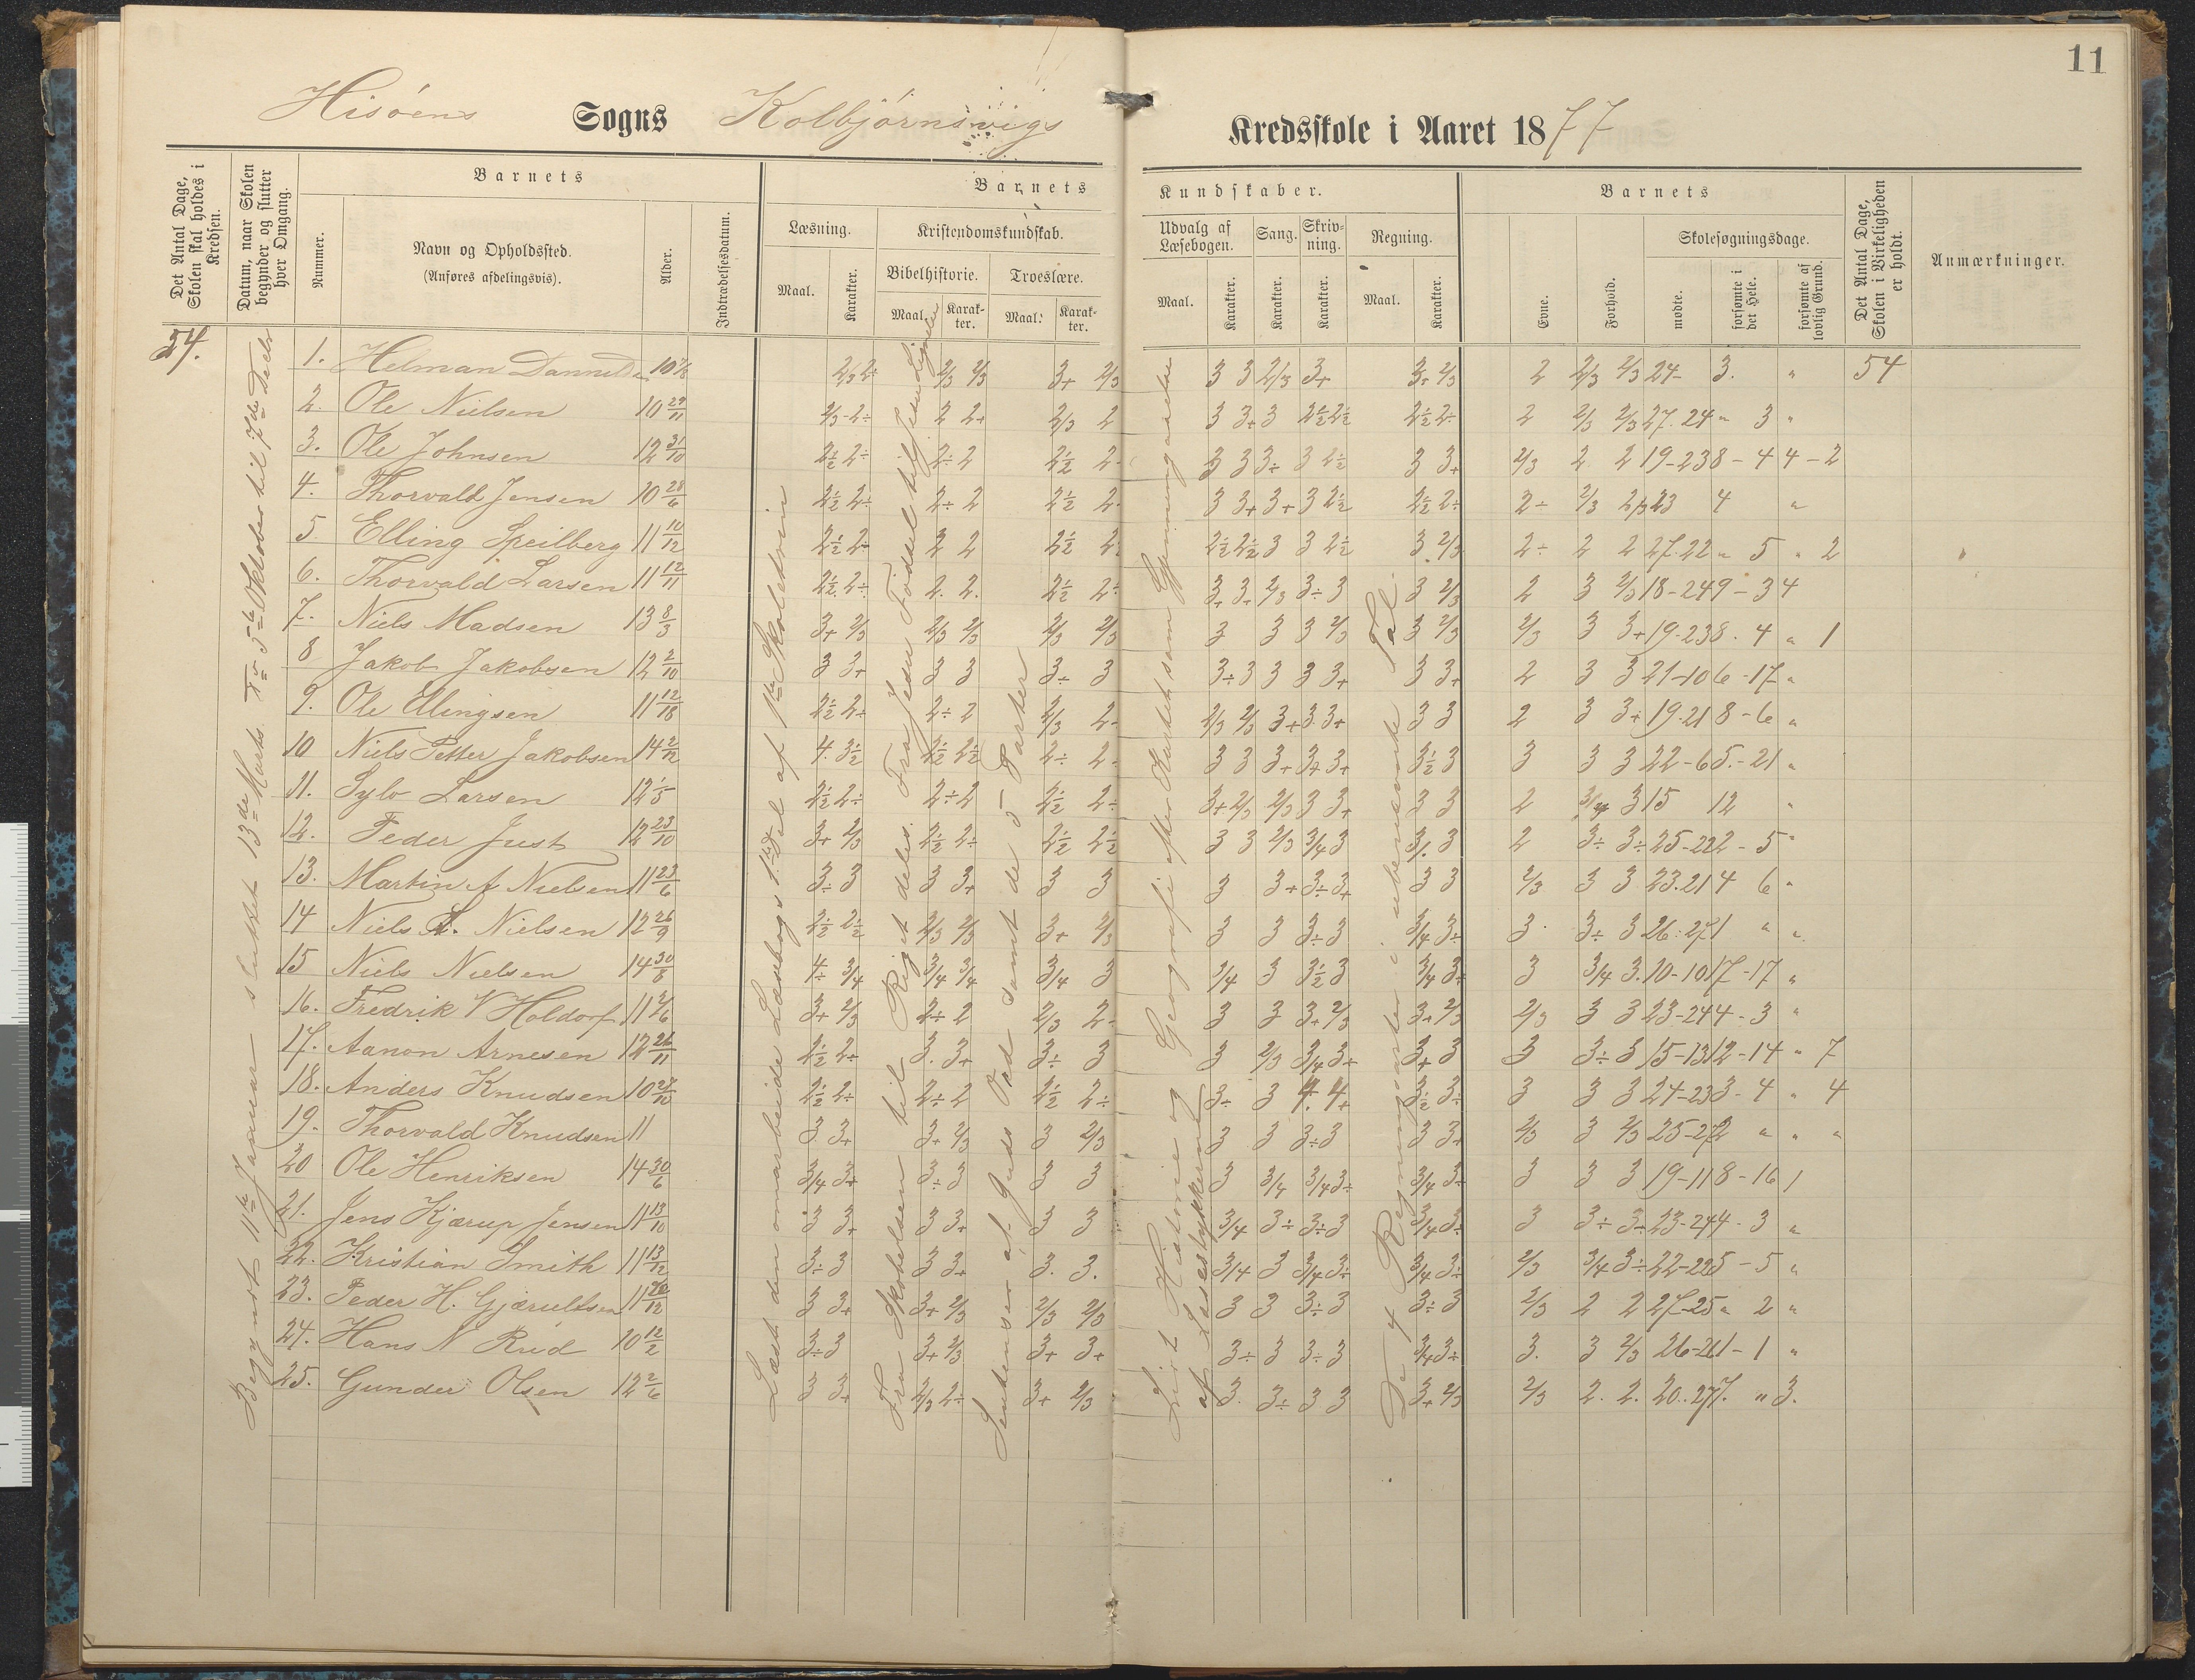 11
Hisöens Sogns Kolbjörnsvigs Kredsskole i Aaret 1877
Det Antal Dage, Skolen skal holdes i Kredsen.
Datum, naar Skolen begynder og slutter hver Omgang.
Barnets
Nummer.
Navn og Opholdssted.
(Anføres afdelingsvis).
Alder.
Indtrædelsesdatum.
Barnets Kundskaber.
Læsning.
Maal.
Karakter.
Kristendomskundskab.
Bibelhistorie.
Maal.
Karakter.
Troeslære.
Maal.
Karakter.
Udvalg af Læsebogen.
Maal.
Karakter.
Sang.
Karakter.
Skrivning.
Karakter.
Regning.
Maal.
Karakter.
Barnets
Evne.
Forhold.
Skolesøgningsdage.
mødte.
forsømte i det Hele.
forsømte af lovlig Grund.
Det Antal Dage, Skolen i Virkeligheden er holdt.
Anmærkninger.
54
Begyndt 11te Januar sluttet 13de Marts. Fr 5te Oktober til 7de Decbr
Læst den omarbeide Læsebogs 1ste Del af 1ste Skoletrin
Fra Skabelsen til Riget deles. Fra Jesu Fødsel til Jesu Lignelser
Sentenser af Guds Ord samt de 5 Parter
Lidt Historie og Geografi efter Kartet som Gjennemgaaelse af Læsestykkerne
De 4 Regningsarter i ubenævnte Tal.
1. Helman Danniels 10 2/3 2÷ 2/3 2/3 3+ 2/3 3 3 2/3 3+ 3+ 2/3 2 2/3 2/3 24- 3. " 54
2. Ole Nielsen 10 29/11 2/3-2÷ 2 2+ 2/3 2 3 3+ 3 2½ 2½ 2½ 2÷ 2 2/3 2/3 27. 24 " 3 "
3. Ole Johnsen 12 31/10 2½ 2÷ 2÷ 2 2½ 2- 3 3 3÷ 3 2½ 3 3+ 2/3 2 2 19-23 8-4 4-2
4. Thorvald Jensen 10 28/6 2½ 2÷ 2÷ 2 2½ 2- 3 3+ 3+ 3 2½ 2½ 2÷ 2÷ 2/3 2/3 23 4 "
5. Elling Speilberg 11 10/12 2½ 2÷ 2 2 2½ 2÷ 2½ 2½ 3 3 2½ 3 2/3 2÷ 2 2 27. 22 " 5 " 2
6. Thorvald Larsen 11 12/11 2½ 2÷ 2. 2. 2½ 2÷ 3+ 3+ 2/3 3÷ 3 3 2/3 2 3 2/3 18-24 9-3 4
7. Niels Madsen 13 8/3 3+ 2/3 2/3 2/3 2/3 2/3 3 3 3 2/3 3 2/3 2/3 3 3+ 19-23 8. 4 " 1
8 Jakob Jakobsen 12 2/10 3 3+ 3 3 3÷ 3 3÷ 3 3 3 3+ 3 3+ 2 3 3 21-10 6-17 "
9. Ole Ellingsen 11 12/18 2½ 2÷ 2÷ 2 2/3 2- 2/3 2/3 3+ 3 3+ 3 3 2 3 3+ 19. 21 8-6 "
10 Niels Petter Jakobsen 14 2/12 4. 3½ 2½ 2½ 2÷ 2- 3 3 3+ 3+ 3+ 3½ 3 3 3 3 22-6 5-21 "
11. Sylv Larsen 12 1/5 2½ 2÷ 2÷ 2 2½ 2÷ 3+ 2/3 2/3 3 3+ 3 3 2 3/4 3 15 12 "
12. Peder Just 12 23/10 3+ 2/3 2½ 2÷ 2½ 2½ 3 3 2/3 3/4 3 3 2 3÷ 3÷ 25-22 2-5 "
13. Martin A Nielsen 11 23/6 3÷ 3 3 3+ 3 3 3 3+ 3÷ 3+ 3 3 2/3 3 3 23. 21 4 6 "
14 Niels A. Nielsen 12 26/9 2½ 2½ 2/3 2/3 3+ 2/3 3 3 3÷ 3 3/4 3÷ 3. 3÷ 3 26-27 1 " "
15 Niels Nielsen 14 30/8 4÷ 3/4 3/4 3/4 3/4 3 3/4 3 3½ 3 3/4 3+ 3 3/4 3. 10-10 17-17 "
16. Fredrik V Holdorf 11 2/6 3+ 2/3 2÷ 2 2/3 2- 3 3 3+ 2/3 3+ 2/3 2/3 3 3 23-24 4-3 "
17. Aanon Arnesen 12 26/11 2½ 2÷ 3. 3+ 3÷ 3 3 2/3 3/4 3+ 3+ 3 3 3÷ 3 15-13 12-14 " 7
18. Anders Knudsen 10 27/10 2½ 2÷ 2÷ 2 2½ 2÷ 3÷ 3 4. 4+ 3½ 3÷ 3 3 3 24-23 3-4 " 4
19. Thorvald Knudsen 11 3 3+ 3+ 2/3 3 2/3 3 3 3÷ 3 3 3+ 2/3 3 2/3 25-27 2 " " "
20 Ole Henriksen 14 30/6 3/4 3+ 3÷ 3 3 3 3 3/4 3/4 3÷ 3/4 3÷ 3 3 3 19-11 8-16 1
21. Jens Kjærup Jensen 11 13/10 3 3+ 3 3+ 3 3 3/4 3÷ 3÷ 3 3/4 3÷ 3 3÷ 3÷ 23-24 4-3 "
22. Kristian Smith 11 13/12 3÷ 3 3 3+ 3. 3. 3/4 3 3/4 3÷ 3/4 3÷ 2/3 3/4 3÷ 22-22 5-5 "
23. Peder H. Gjærulfsen 11 26/12 3 3+ 3+ 2/3 2/3 2/3 3 3 3÷ 3 3÷ 3 2/3 2 2 27-25 " 2 "
24. Hans N Rud 10 12/2 3÷ 3 3+ 2/3 3+ 3+ 3÷ 3 3÷ 3 3/4 3÷ 3. 3 2/3 26-26 1-1 "
25. Gunder Olsen 12 2/6 3 3+ 2/3 2÷ 3+ 2/3 3. 3÷ 3 3 3+ 2/3 2/3 2. 2. 20. 27 7. " 3.